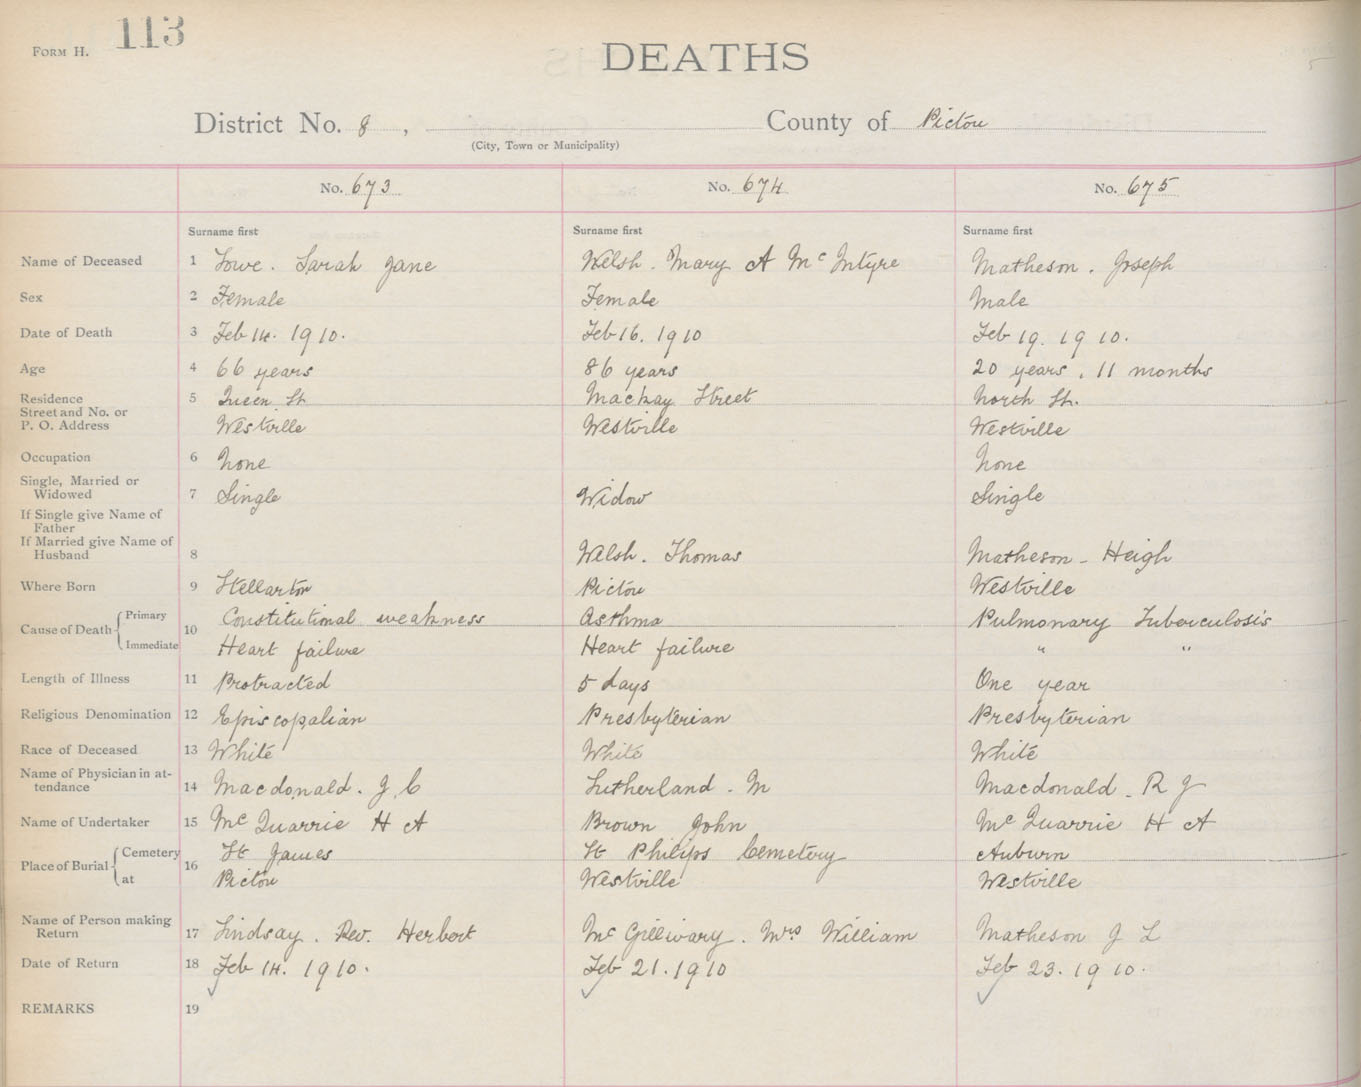 FORM H. 113
DEATHS
District No. 8, County of Pictou
(City, Town or Municipality)
No. 673 No. 674 No. 675
Surname first Surname first Surname first
Name of Deceased 1 Lowe. Sarah Jane Welsh. Mary A McIntyre Matheson. Joseph
Sex 2 Female Female Male
Date of Death 3 Feb 14. 1910. Feb 16. 1910 Feb 19. 1910.
Age 4 66 years 86 years 20 years, 11 months
Residence 5 Queen St Mackay Street North St.
Street and No. or
P. O. Address Westville Westville Westville
Occupation 6 None None
Single, Married or
Widowed 7 Single Widow Single
If Single give Name of
Father
If Married give Name of
Husband 8 Welsh. Thomas Matheson - Heigh
Where Born 9 Stellarton Pictou Westville
Cause of Death 10 Primary Constitutional weakness Asthma Pulmonary Tuberculosis
Immediate Heart failure Heart failure " "
Length of Illness 11 Protracted 5 days One year
Religious Denomination 12 Episcopalian Presbyterian Presbyterian
Race of Deceased 13 White White White
Name of Physician in at-
tendance 14 Macdonald. J. C Sutherland. M Macdonald. R J
Name of Undertaker 15 McQuarrie H A Brown John McQuarrie H A
Place of Burial 16 Cemetery St James St Philips Cemetery Auburn
at Pictou Westville Westville
Name of Person making
Return 17 Lindsay. Rev. Herbert McGillivary. Mrs William Matheson J L
Date of Return 18 Feb 14. 1910. Feb 21. 1910 Feb 23. 1910.
REMARKS 19